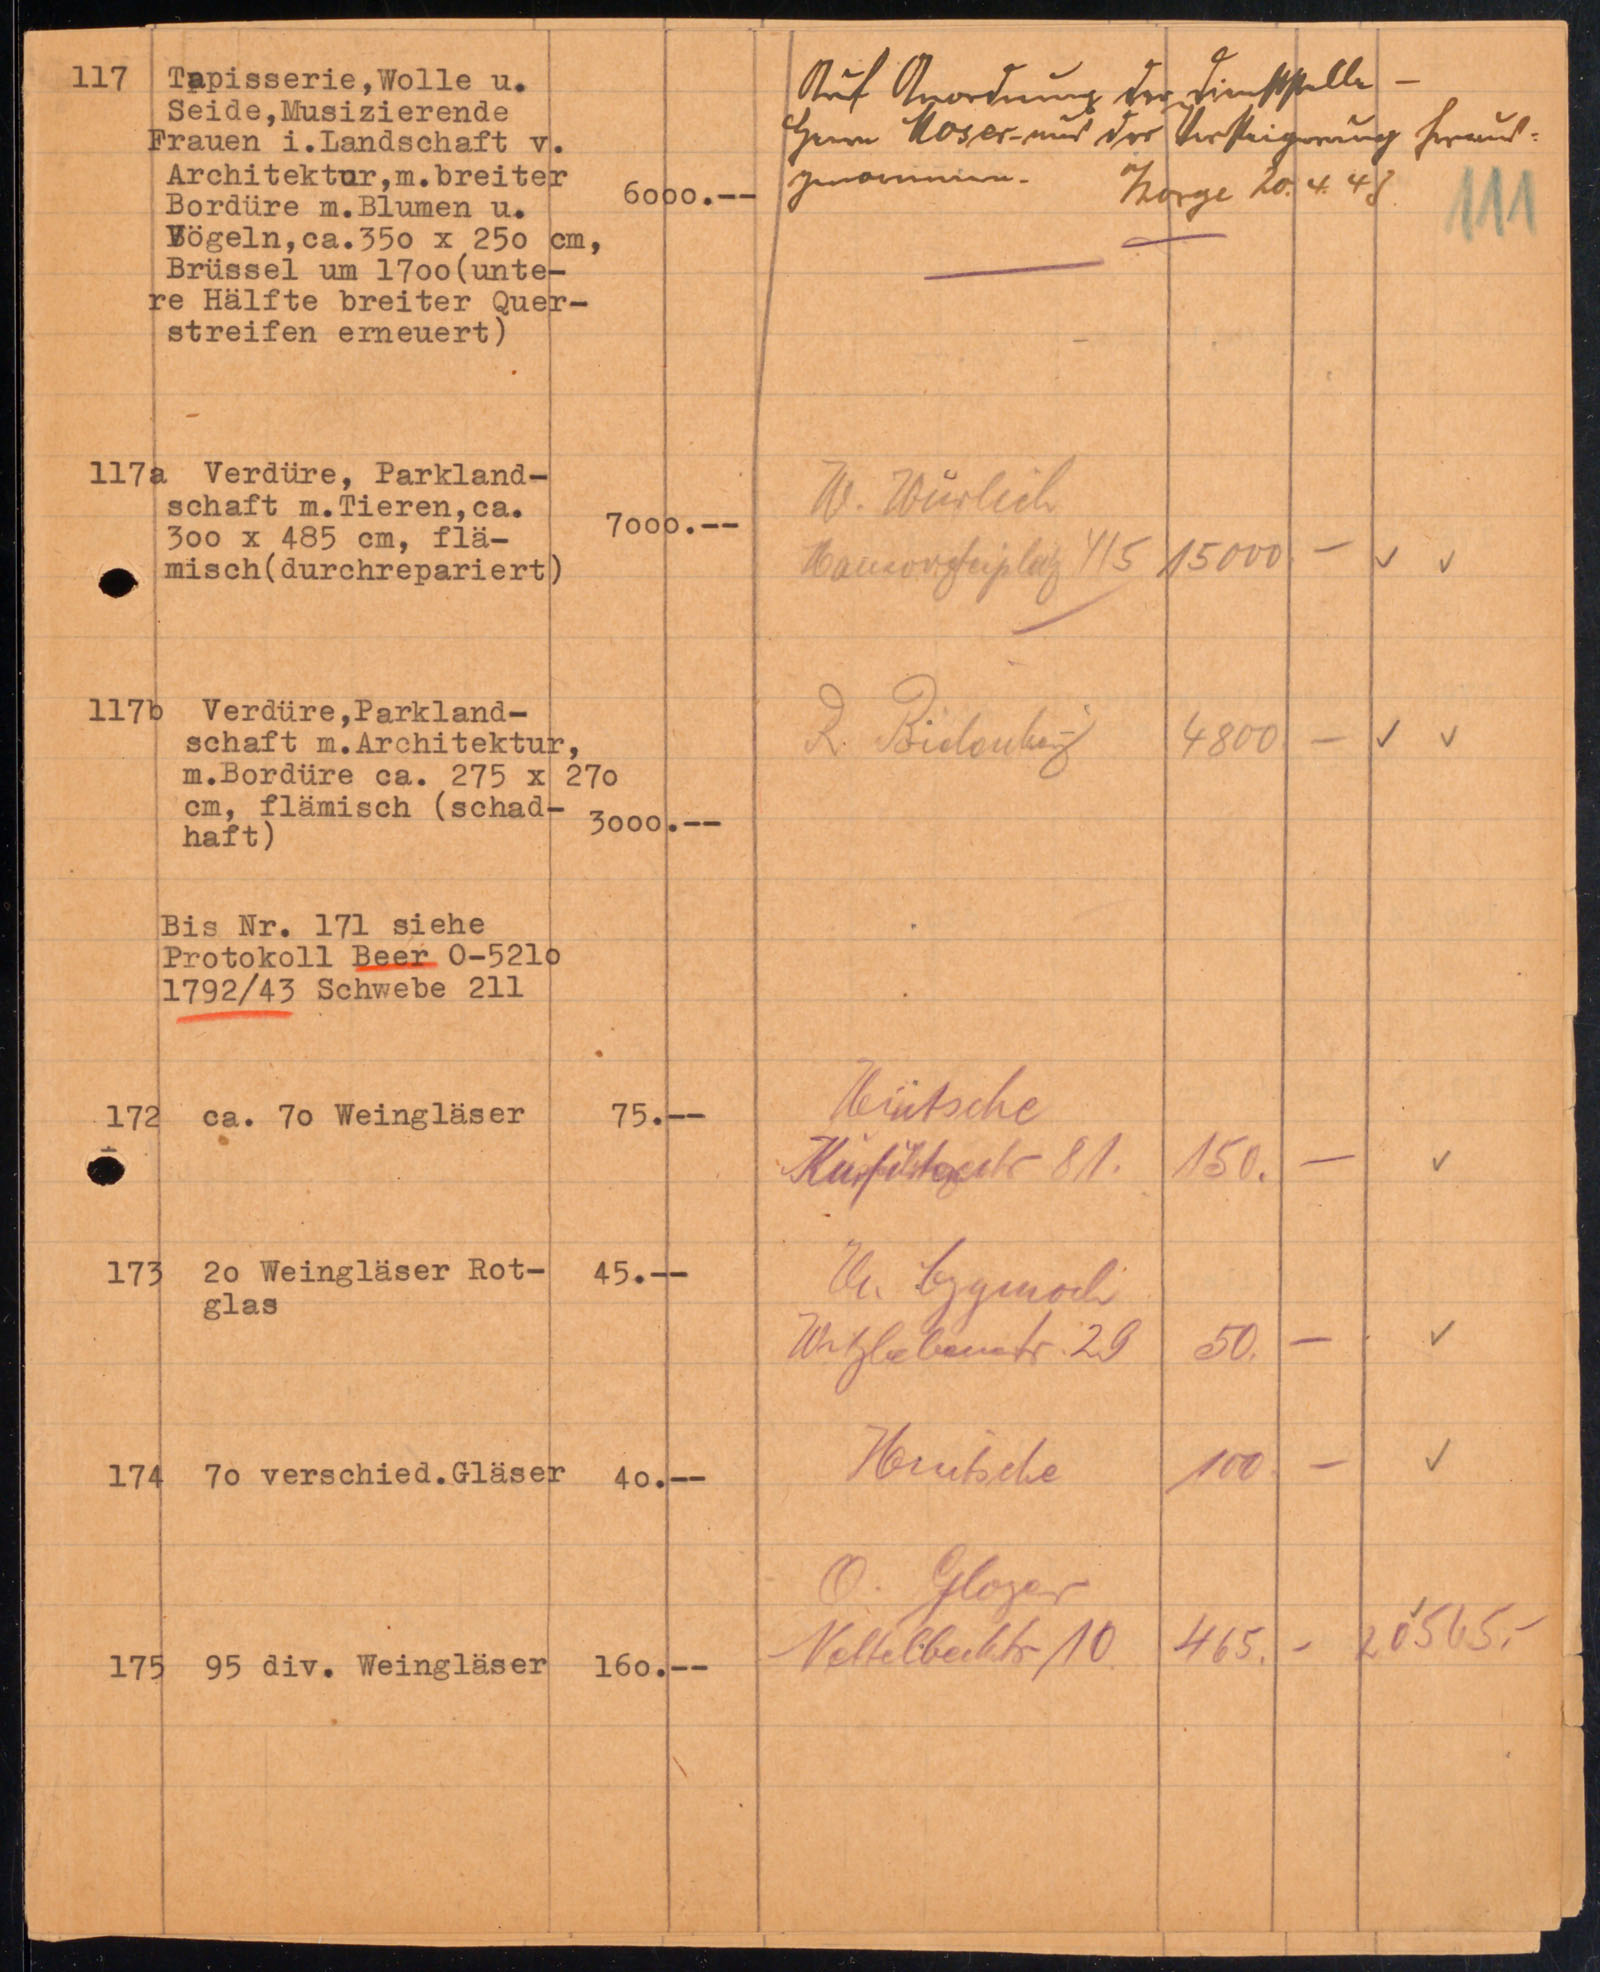 117 Tapisserie,Wolle u.
Seide,Musizierende
Frauen i.Landschaft v.
Architektur,m.breiter
Bordüre m.Blumen u.
Vögeln,ca.35o x 25o cm,
Brüssel um 17oo(unte-
re Hälfte breiter Quer-
streifen erneuert)
6ooo.--
Auf Anordnung der Dienststelle -
Herrn Moser - aus der Versteigerung heraus-
genommen. 20. 4. 43
111
117a Verdüre, Parkland-
schaft m.Tieren,ca.
3oo x 485 cm, flä-
misch(durchrepariert)
7ooo.--
W. Würlich
4/5 15000 - ✓ ✓
117b Verdüre,Parkland-
schaft m.Architektur,
m.Bordüre ca. 275 x 27o
cm, flämisch (schad-
haft)
3ooo.--
R. 4800 - ✓ ✓
Bis Nr. 171 siehe
Protokoll Beer O-521o
1792/43 Schwebe 211
172 ca. 7o Weingläser 75.--
81. 150. - ✓
173 2o Weingläser Rot-
glas
45.--
Witzlebenstr. 29 50. - ✓
174 7o verschied.Gläser 4o.--
100. - ✓
175 95 div. Weingläser 16o.--
O. Glozer
Nettelbeckstr 10 465. - 20565.-